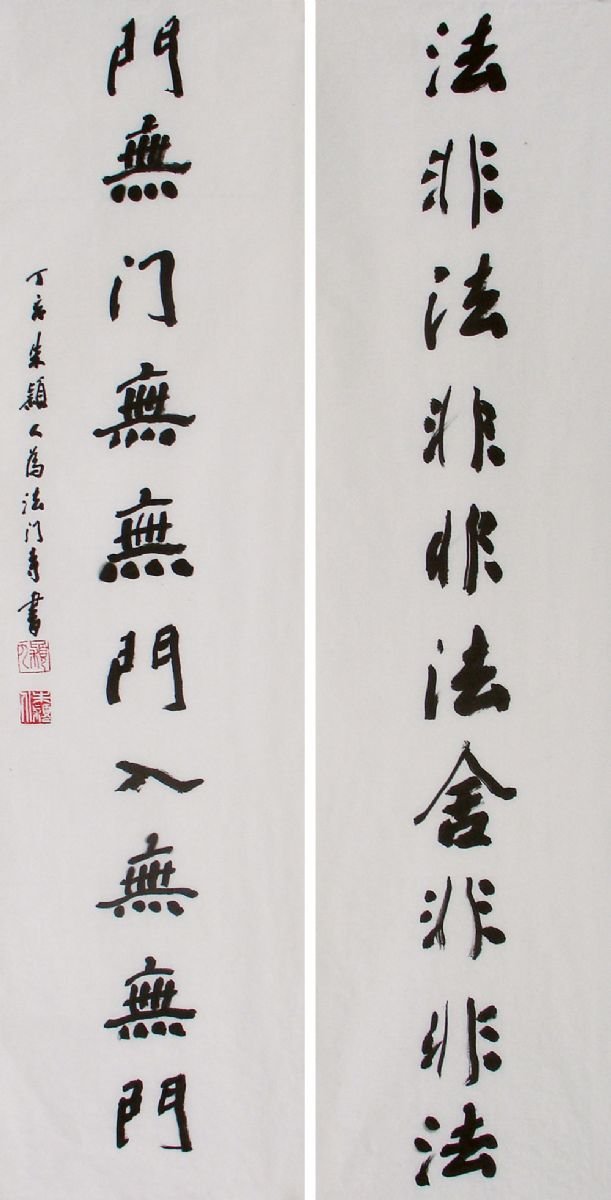 法非法非非法舍非非法
門無门無無門入無無門
丁亥朱穎人為法门寺書